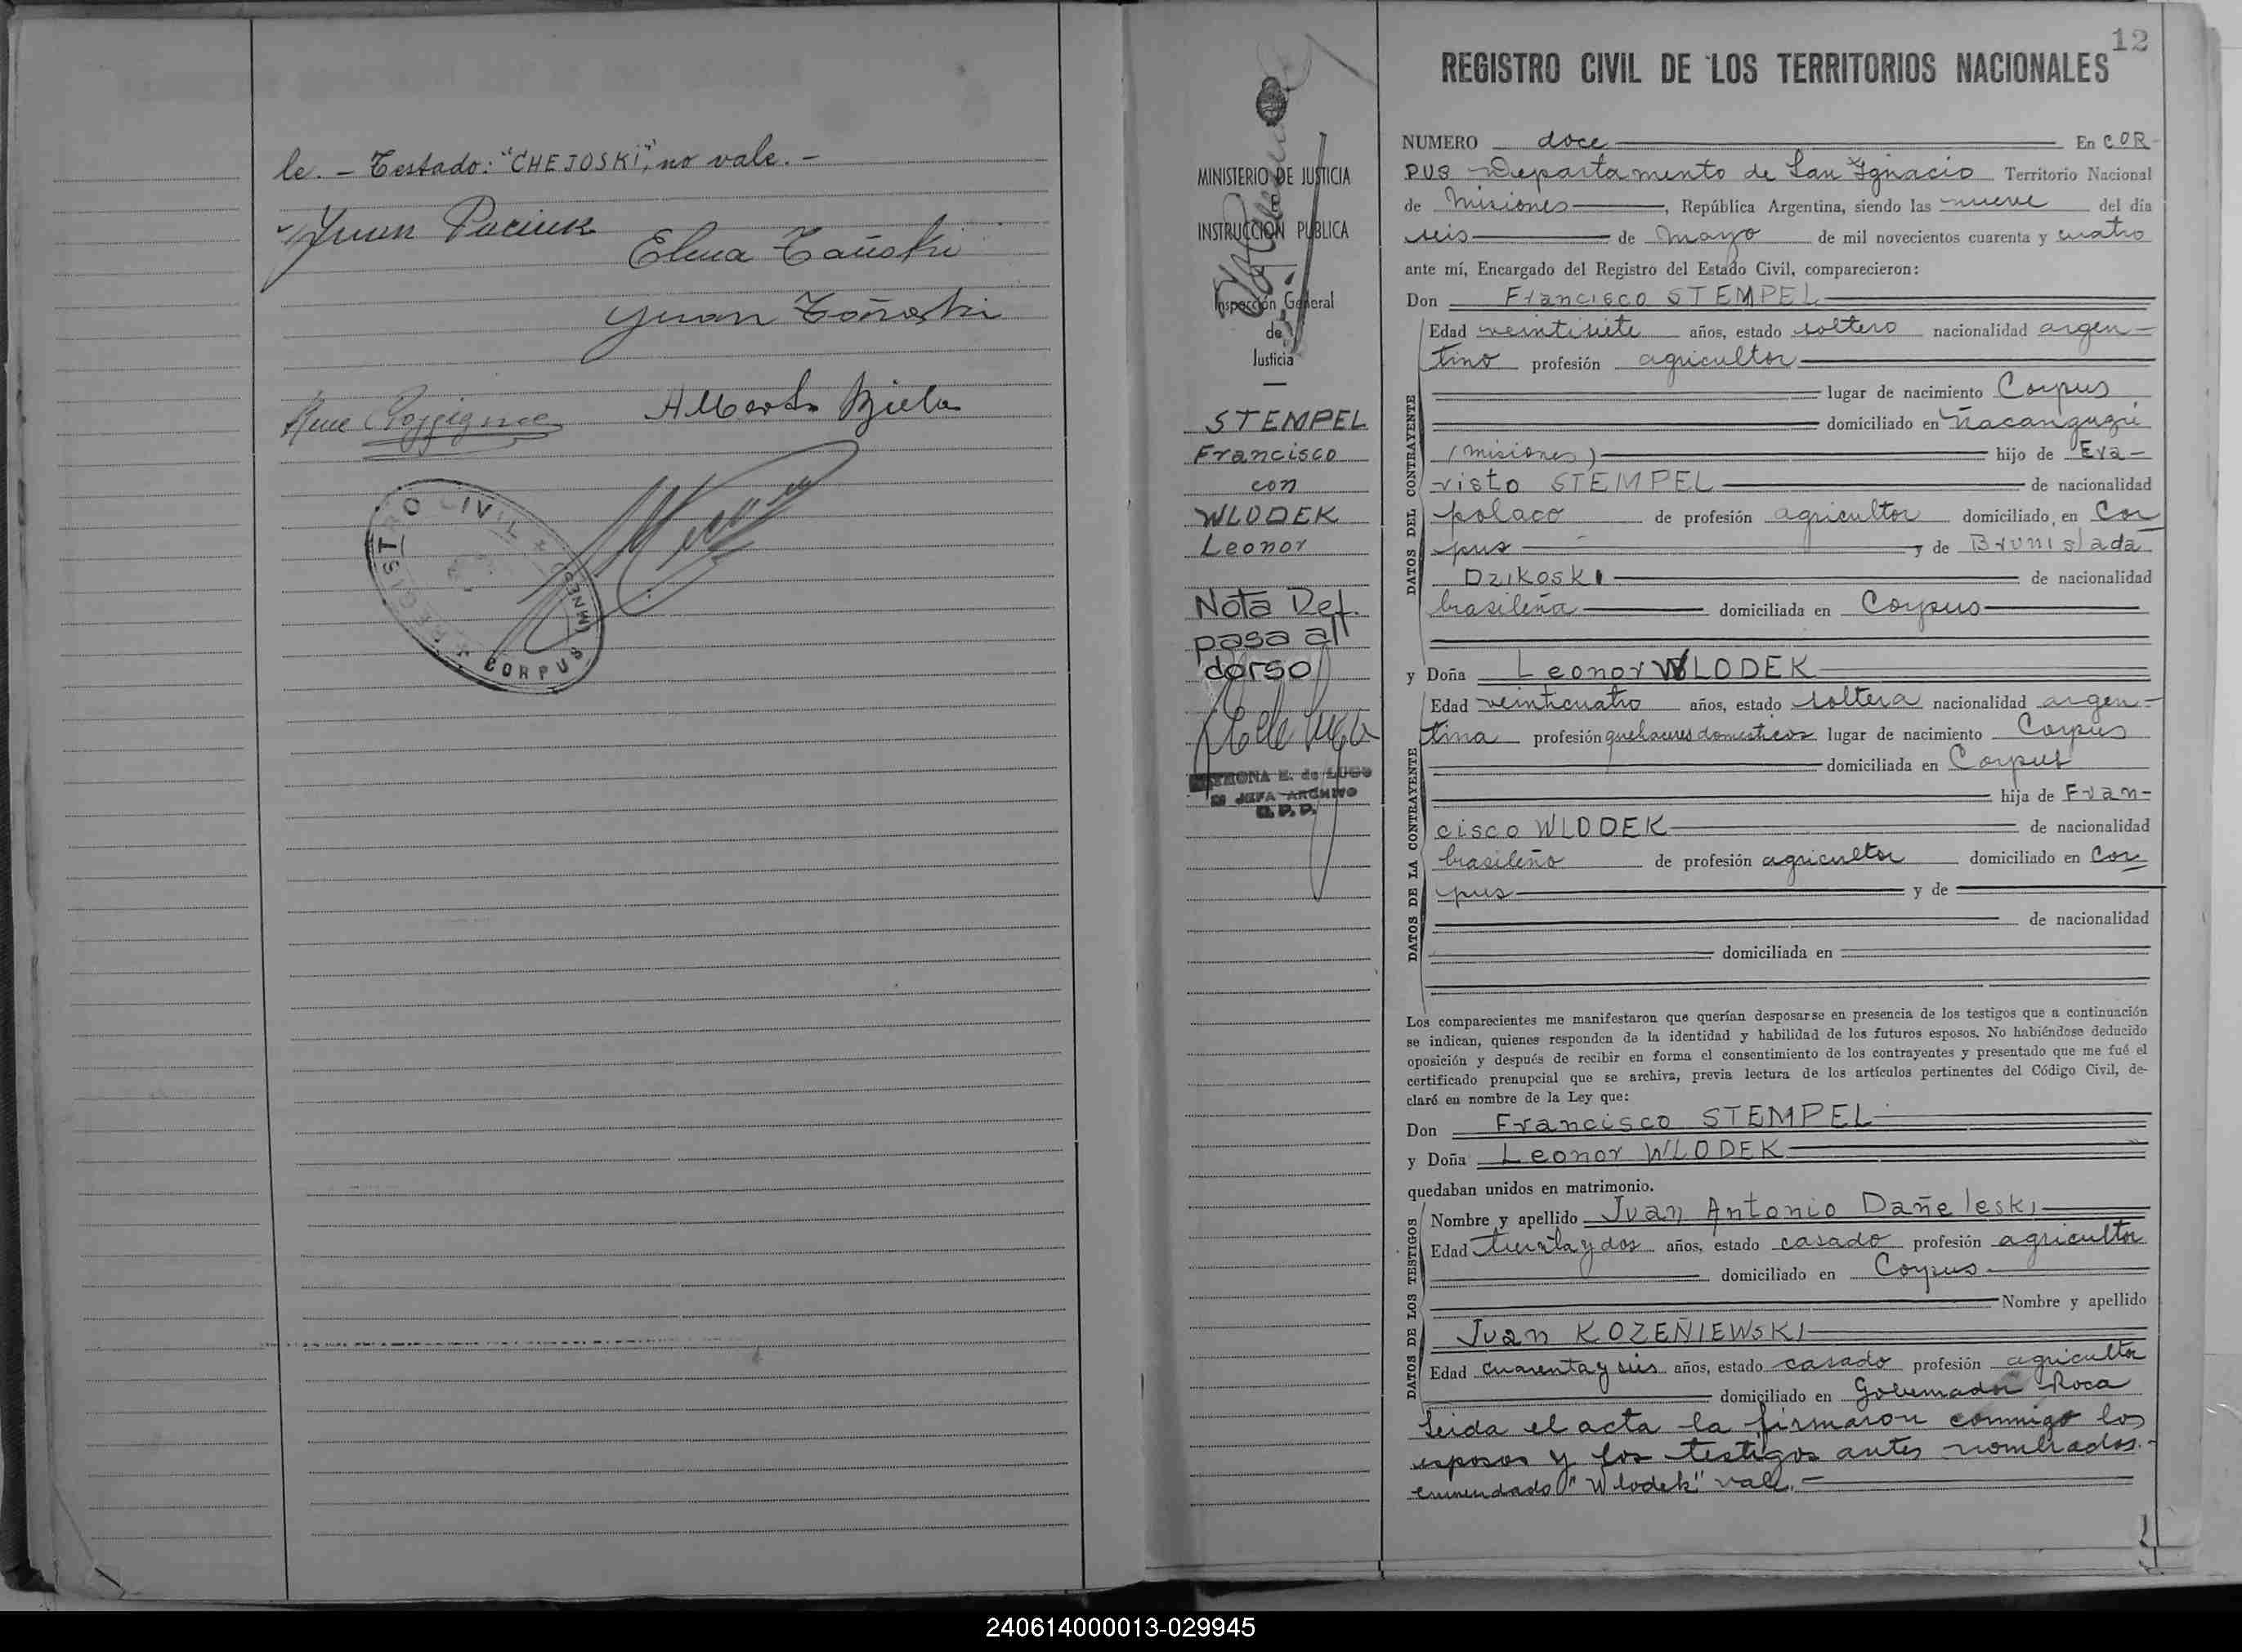 le. - Testado: "CHEJOSKI", no vale. -
Juan Paciuk
Elena Tañski
Juan Tañski
Alberto Biela
REGISTRO CIVIL
CORPUS
12
REGISTRO CIVIL DE LOS TERRITORIOS NACIONALES
MINISTERIO DE JUSTICIA
E
INSTRUCCION PUBLICA
Inspección General
de
Justicia
STEMPEL
Francisco
con
WLODEK
Leonor
Nota Def.
pasa all
dorso
E. de LUGO
JEFA ARCHIVO
NUMERO doce En COR-
PUS Departamento de San Ignacio Territorio Nacional
de Misiones, República Argentina, siendo las nueve del día
seis de mayo de mil novecientos cuarenta y cuatro
ante mí, Encargado del Registro del Estado Civil, comparecieron:
Don Francisco STEMPEL
DATOS DEL CONTRAYENTE
Edad veintisiete años, estado soltero nacionalidad argen-
tino profesión agricultor
lugar de nacimiento Corpus
domiciliado en Ñacanguzú
(misiones) hijo de Eva-
risto STEMPEL de nacionalidad
polaco de profesión agricultor domiciliado en Cor
pus y de Brunislada
DZIKOSKI de nacionalidad
brasileña domiciliada en Corpus
y Doña Leonor WLODEK
DATOS DE LA CONTRAYENTE
Edad veinticuatro años, estado soltera nacionalidad argen-
tina profesión quehaceres domesticos lugar de nacimiento Corpus
domiciliada en Corpus
hija de Fran-
cisco WLODEK de nacionalidad
brasileño de profesión agricultor domiciliado en Cor
pus y de
de nacionalidad
domiciliada en
Los comparecientes me manifestaron que querían desposarse en presencia de los testigos que a continuación
se indican, quienes responden de la identidad y habilidad de los futuros esposos. No habiéndose deducido
oposición y después de recibir en forma el consentimiento de los contrayentes y presentado que me fué el
certificado prenupcial que se archiva, previa lectura de los artículos pertinentes del Código Civil, de-
claré en nombre de la Ley que:
Don Francisco STEMPEL
y Doña Leonor WLODEK
quedaban unidos en matrimonio.
DATOS DE LOS TESTIGOS
Nombre y apellido Juan Antonio Dañeleski
Edad treinta y dos años, estado casado profesión agricultor
domiciliado en Corpus
Nombre y apellido
Juan KOZEÑIEWSKI
Edad cuarenta y seis años, estado casado profesión agricultor
domiciliado en Gobernador Roca
Leida el acta la firmaron conmigo los
esposos y los testigos antes nombrados.-
enmendado "Wlodek" vale.-
240614000013-029945